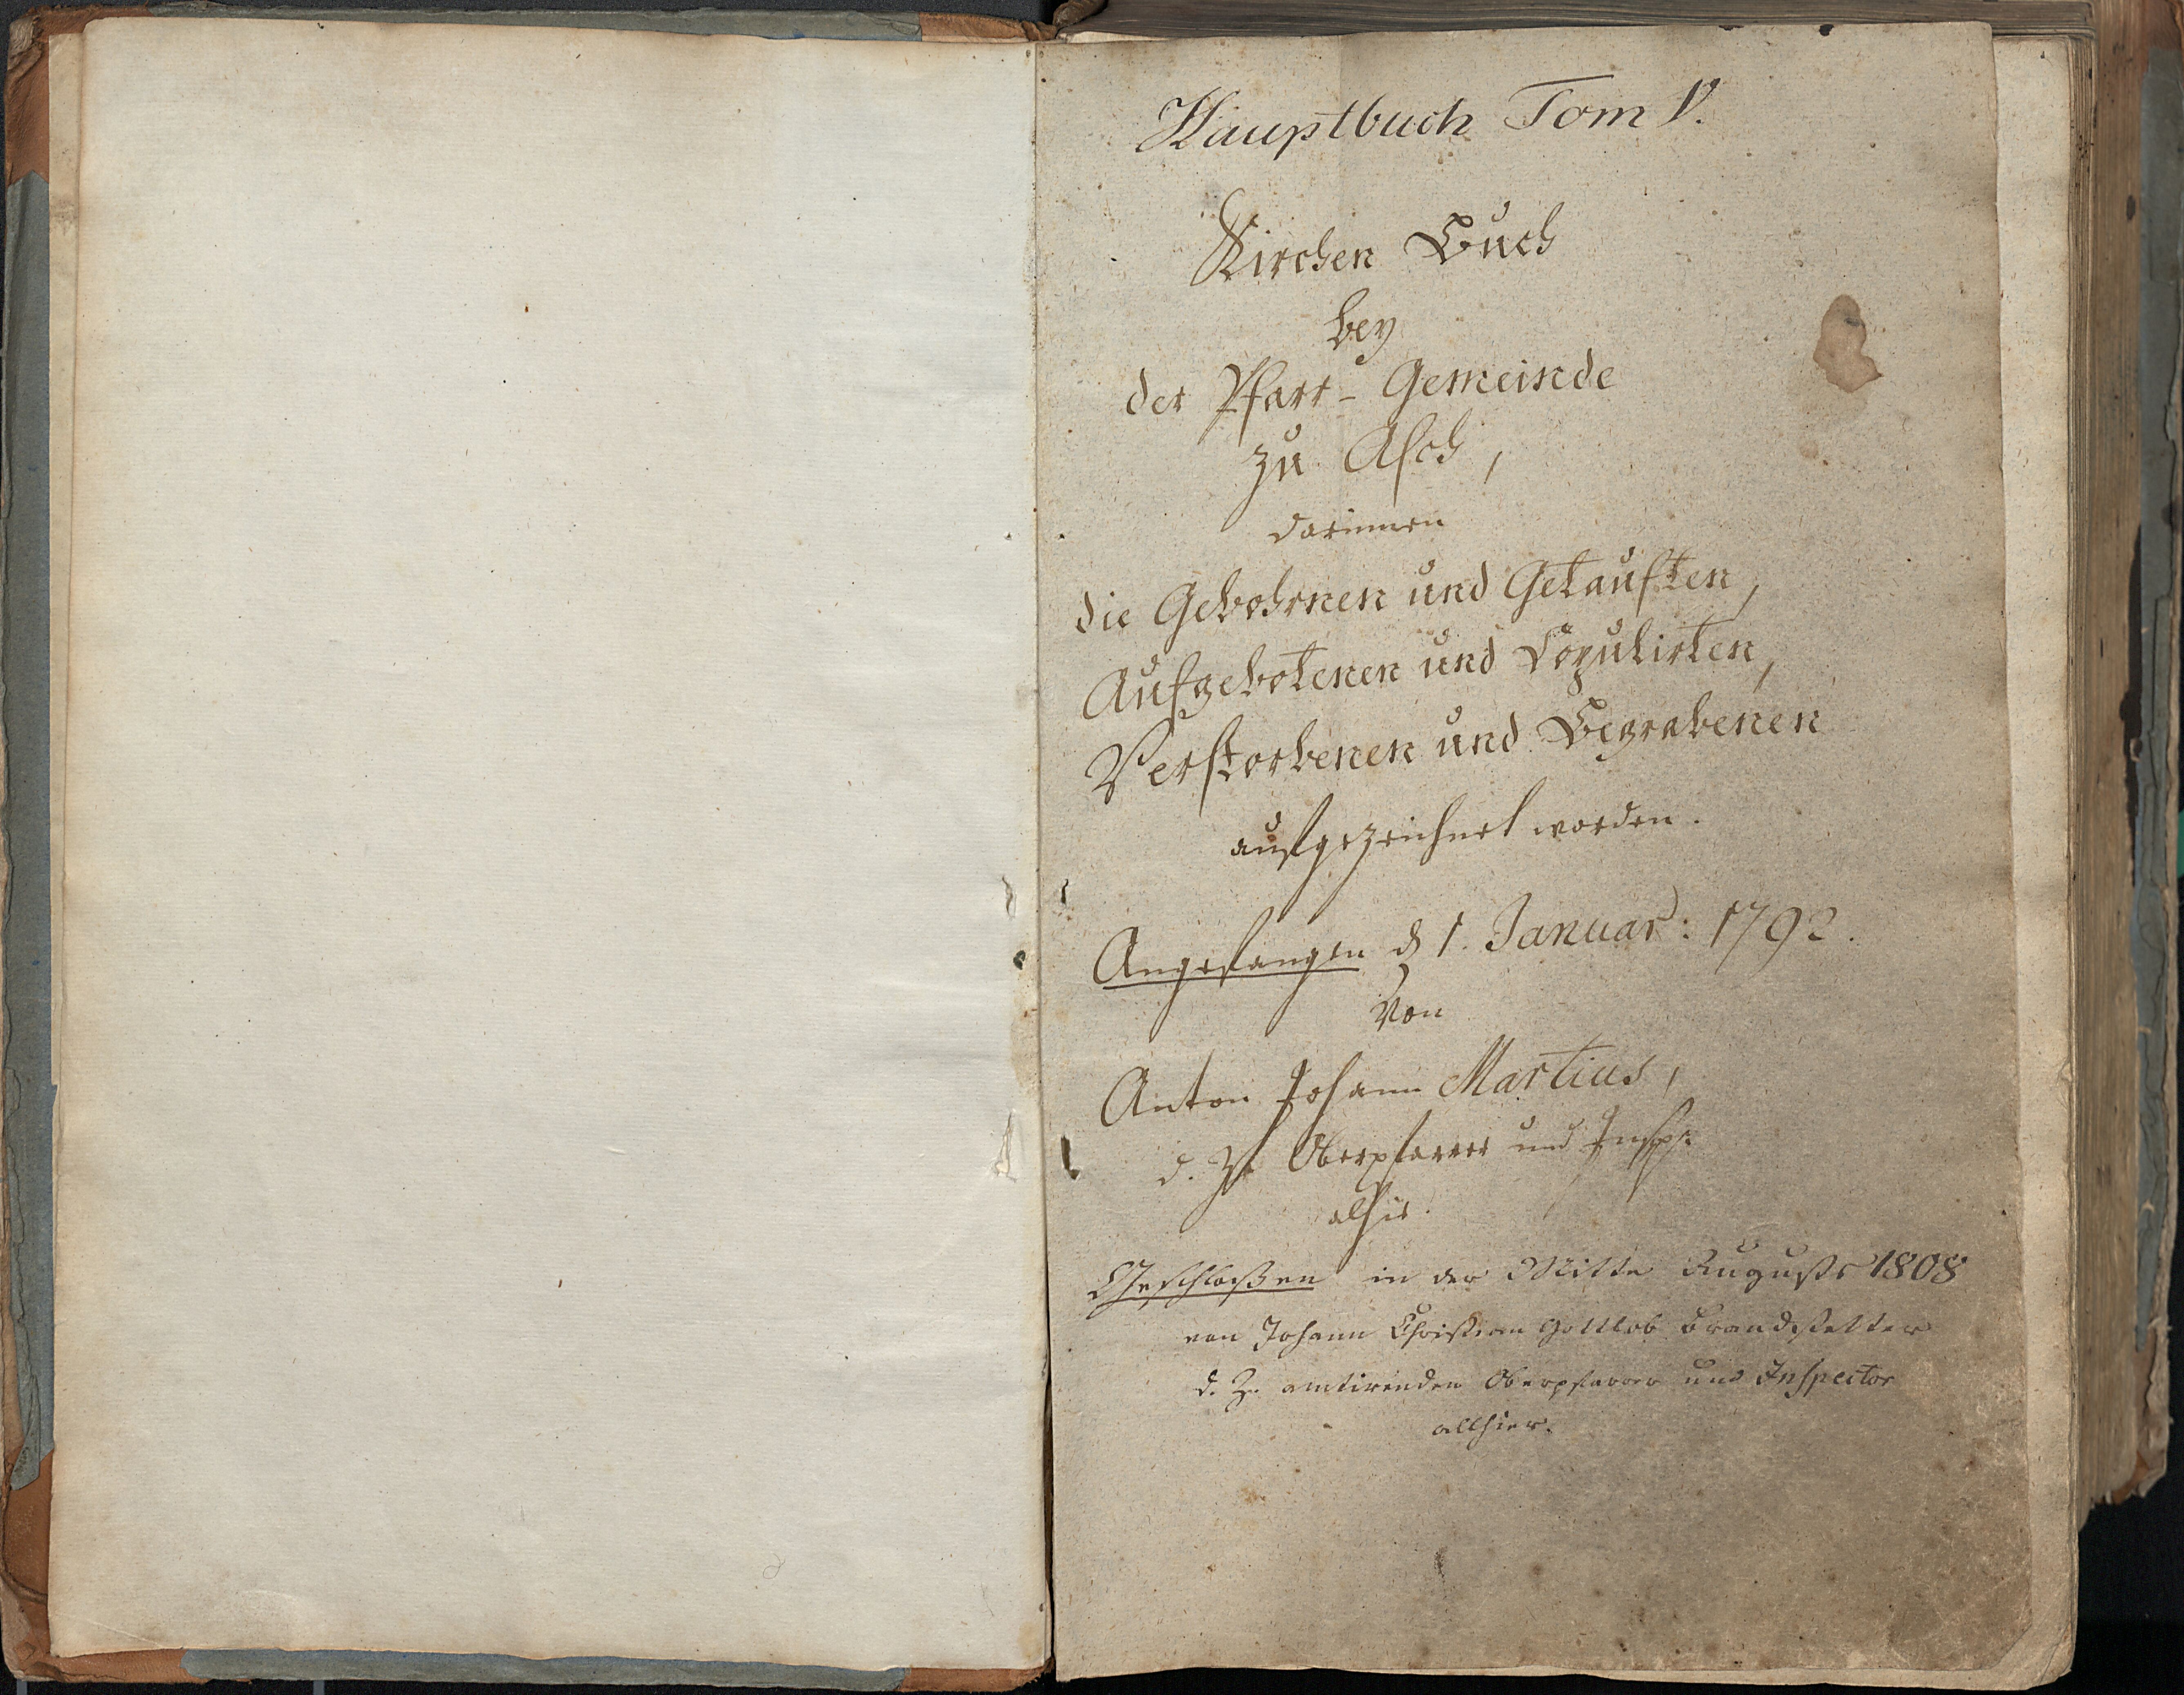 Hauptbuch Tom V.
Kirchen Buch
bey
der Pfarr-Gemeinde
zu Asch,
darinnen
die Gebohrnen und Getauften,
Aufgebotenen und Copulirten,
Verstorbenen und Begrabenen
aufgezeichnet worden.
Angefangen d. 1. Januar: 1792.
von
Anton Johann Martius,
d. Z. Oberpfarrer und Insp:
alhie.
Geschloßen in der Mitte Augusts 1808
von Johann Christian Gottlob Brandstetter
d. Z. amtirenden Oberpfarrer und Inspector
allhier.